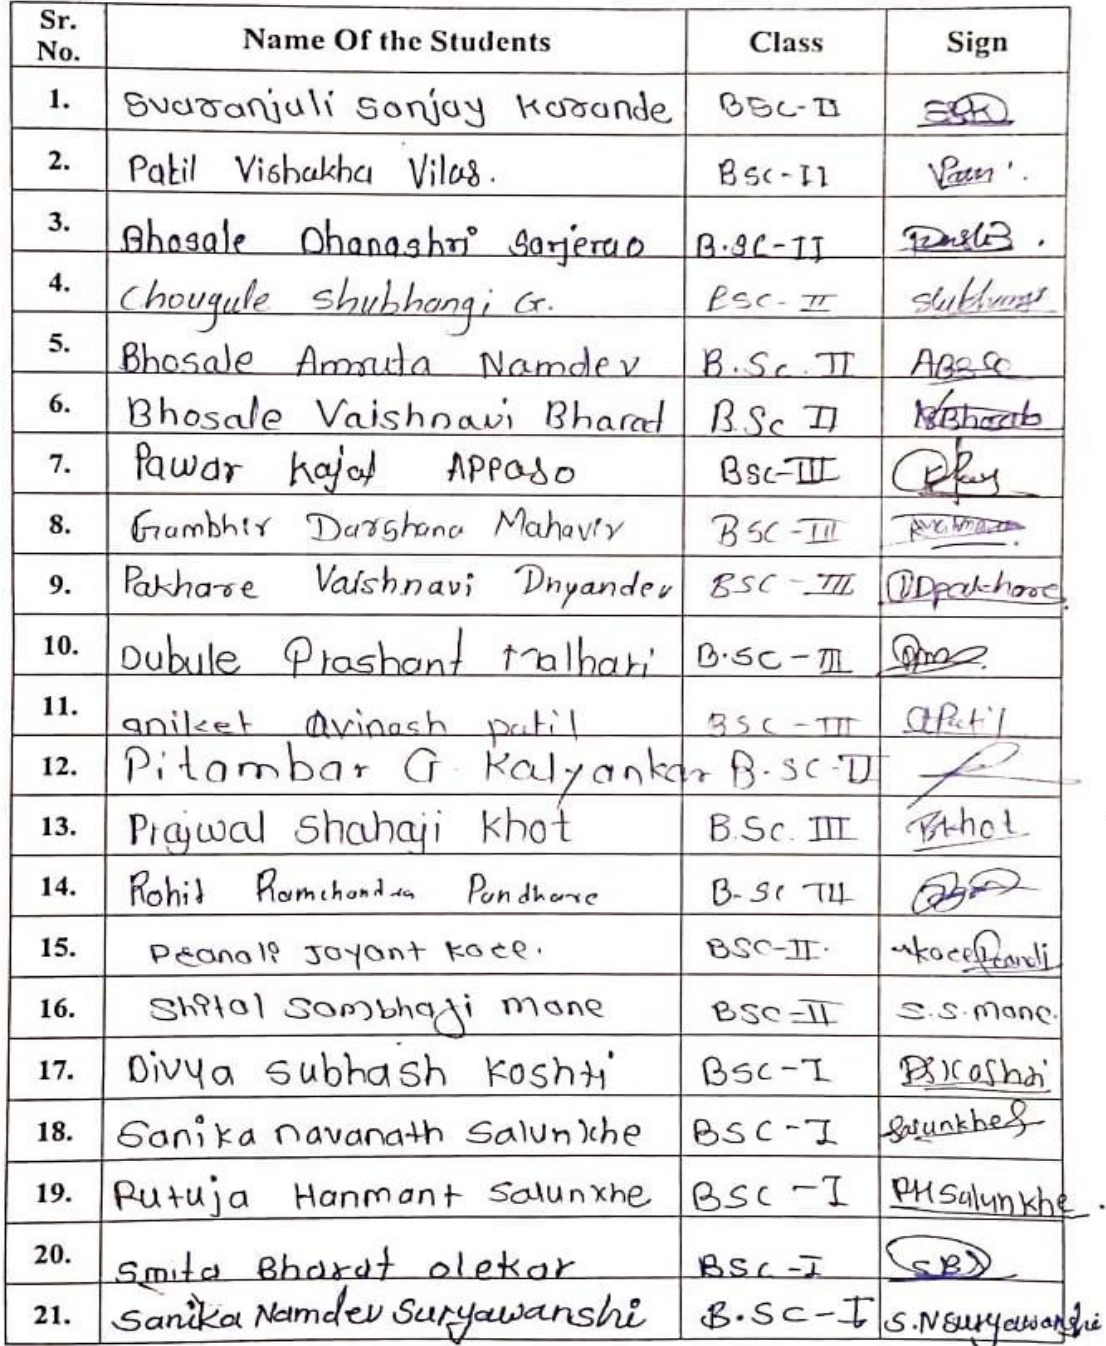 Sr. No. Name Of the Students Class Sign
1. Svaranjuli Sanjay Karande BSc-II
2. Patil Vishakha Vilas. BSc-II
3. Bhosale Dhanashri Sarjerao B.SC-II
4. Chougule Shubhangi G. BSC-II Shubhangi
5. Bhosale Amruta Namdev B.Sc. II
6. Bhosale Vaishnavi Bharat B.Sc II
7. Pawar Kajal Appaso BSC-III
8. Gambhir Darshana Mahavir BSC-III
9. Pakhare Vaishnavi Dnyandev BSC-III VDpakhare
10. Dubule Prashant Malhari B.SC-III
11. aniket avinash patil BSC-III APatil
12. Pitambar G. Kalyankar B.SC-II
13. Prajwal Shahaji Khot B.Sc. III PKhot
14. Rohit Ramchandra Pandhare B-Sc III
15. Pranali Jayant Kore. BSC-II. Kore Pranali
16. Shital Sambhaji mane BSC-II S.S.mane.
17. Divya Subhash Koshti BSC-I DSKoshti
18. Sanika navanath Salunkhe BSC-I Salunkhe
19. Rutuja Hanmant Salunkhe BSC-I RHSalunkhe.
20. Smita Bharat olekar BSC-I
21. Sanika Namdev Suryawanshi B.SC-I S.NSuryawanshi